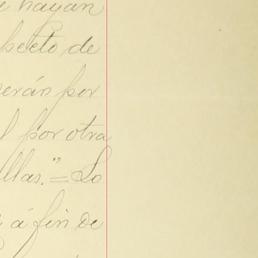 e hayan
pecto de
serán por
l por otra
llas."=Lo
a fin de